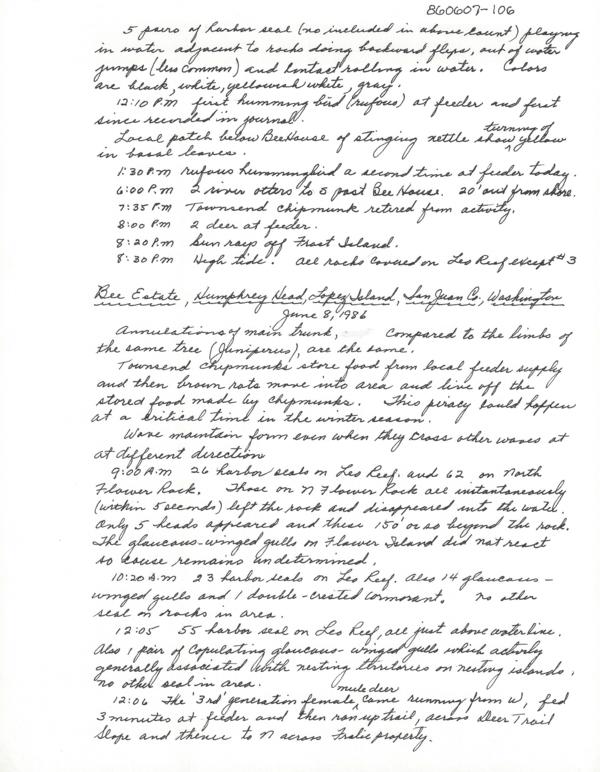 860607-106
5 pairs of harbor seal (no included in above count) playing
in water adjacent to rocks doing backward flips, out of water
jumps (less common) and contact rolling in water. Colors
are black, white, yellowish white, gray.
12:10 P.M first humming bird (rufous) at feeder and first
since recorded in journal.
Local patch below Bee House of stinging nettle show turning of yellow
in basal leaves.
1:30 P.M rufous hummingbird a second time at feeder today.
6:00 P.M 2 river otters to S past Bee House. 20' out from shore.
7:35 P.M Townsend chipmunk retired from activity.
8:00 P.M 2 deer at feeder.
8:20 P.M Sun rays off Frost Island.
8:30 P.M High tide. All rocks covered on Leo Reef except #3
Bee Estate, Humphrey Head, Lopez Island, San Juan Co, Washington
June 8, 1986
Annulations of main trunk, compared to the limbs of
the same tree (Juniperus), are the same.
Townsend chipmunks store food from local feeder supply
and then brown rats move into area and live off the
stored food made by chipmunks. This piracy could happen
at a critical time in the winter season.
Wave maintain form even when they cross other waves at
at different direction
9:00 A.M 26 harbor seals on Leo Reef. and 62 on North
Flower Rock. Those on N Flower Rock all instantaneously
(within 5 seconds) left the rock and disappeared into the water.
Only 5 heads appeared and these 150' or so beyond the rock.
The glaucous-winged gulls on Flower Island did not react
so cause remains undetermined.
10:20 A.M 23 harbor seals on Leo Reef. Also 14 glaucous-
winged gulls and 1 double-crested cormorant. No other
seal on rocks in area.
12:05 55 harbor seal on Leo Reef, all just above waterline.
Also 1 pair of copulating glaucous-winged gulls which activity
generally associated with nesting territories on nesting islands.
No other seal in area.
12:06 The '3rd' generation female mule deer came running from W, fed
3 minutes at feeder and then ran up trail, across Deer Trail
Slope and thence to N across Fralic property.